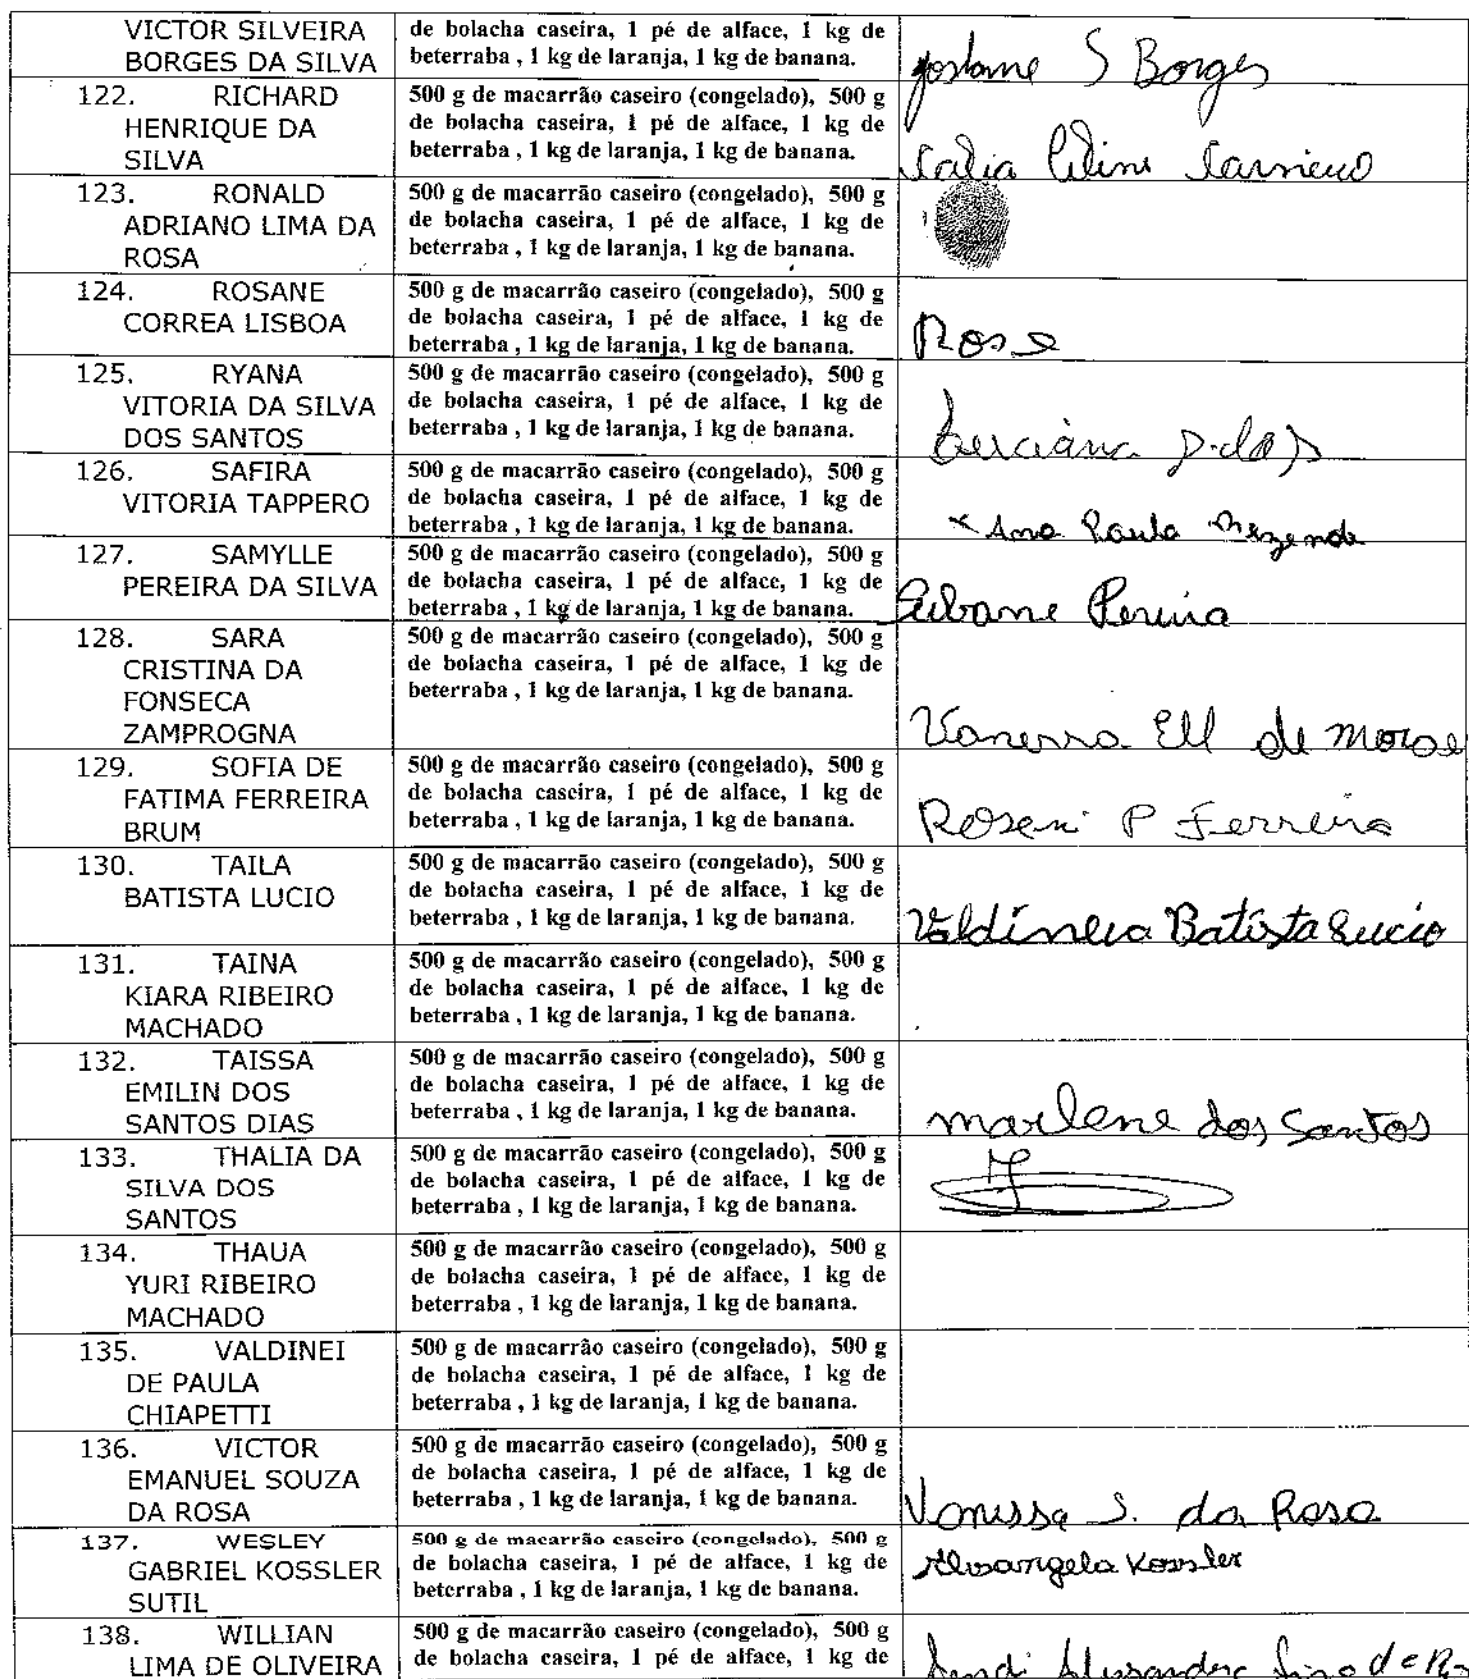 VICTOR SILVEIRA
BORGES DA SILVA
de bolacha caseira, 1 pé de alface, 1 kg de
beterraba , 1 kg de laranja, 1 kg de banana.
S Borges
122. RICHARD
HENRIQUE DA
SILVA
500 g de macarrão caseiro (congelado), 500 g
de bolacha caseira, 1 pé de alface, 1 kg de
beterraba , 1 kg de laranja, 1 kg de banana.
123. RONALD
ADRIANO LIMA DA
ROSA
500 g de macarrão caseiro (congelado), 500 g
de bolacha caseira, 1 pé de alface, 1 kg de
beterraba , 1 kg de laranja, 1 kg de banana.
124. ROSANE
CORREA LISBOA
500 g de macarrão caseiro (congelado), 500 g
de bolacha caseira, 1 pé de alface, 1 kg de
beterraba , 1 kg de laranja, 1 kg de banana.
Rose
125. RYANA
VITORIA DA SILVA
DOS SANTOS
500 g de macarrão caseiro (congelado), 500 g
de bolacha caseira, 1 pé de alface, 1 kg de
beterraba , 1 kg de laranja, 1 kg de banana.
126. SAFIRA
VITORIA TAPPERO
500 g de macarrão caseiro (congelado), 500 g
de bolacha caseira, 1 pé de alface, 1 kg de
beterraba , 1 kg de laranja, 1 kg de banana.
x Ana Paula Rezende
127. SAMYLLE
PEREIRA DA SILVA
500 g de macarrão caseiro (congelado), 500 g
de bolacha caseira, 1 pé de alface, 1 kg de
beterraba , 1 kg de laranja, 1 kg de banana.
Pereira
128. SARA
CRISTINA DA
FONSECA
ZAMPROGNA
500 g de macarrão caseiro (congelado), 500 g
de bolacha caseira, 1 pé de alface, 1 kg de
beterraba , 1 kg de laranja, 1 kg de banana.
Vanessa Ell de Morae
129. SOFIA DE
FATIMA FERREIRA
BRUM
500 g de macarrão caseiro (congelado), 500 g
de bolacha caseira, 1 pé de alface, 1 kg de
beterraba , 1 kg de laranja, 1 kg de banana.
Roseni P Ferreira
130. TAILA
BATISTA LUCIO
500 g de macarrão caseiro (congelado), 500 g
de bolacha caseira, 1 pé de alface, 1 kg de
beterraba , 1 kg de laranja, 1 kg de banana.
Valdineia Batista Lucio
131. TAINA
KIARA RIBEIRO
MACHADO
500 g de macarrão caseiro (congelado), 500 g
de bolacha caseira, 1 pé de alface, 1 kg de
beterraba , 1 kg de laranja, 1 kg de banana.
132. TAISSA
EMILIN DOS
SANTOS DIAS
500 g de macarrão caseiro (congelado), 500 g
de bolacha caseira, 1 pé de alface, 1 kg de
beterraba , 1 kg de laranja, 1 kg de banana.
marlene dos Santos
133. THALIA DA
SILVA DOS
SANTOS
500 g de macarrão caseiro (congelado), 500 g
de bolacha caseira, 1 pé de alface, 1 kg de
beterraba , 1 kg de laranja, 1 kg de banana.
134. THAUA
YURI RIBEIRO
MACHADO
500 g de macarrão caseiro (congelado), 500 g
de bolacha caseira, 1 pé de alface, 1 kg de
beterraba , 1 kg de laranja, 1 kg de banana.
135. VALDINEI
DE PAULA
CHIAPETTI
500 g de macarrão caseiro (congelado), 500 g
de bolacha caseira, 1 pé de alface, 1 kg de
beterraba , 1 kg de laranja, 1 kg de banana.
136. VICTOR
EMANUEL SOUZA
DA ROSA
500 g de macarrão caseiro (congelado), 500 g
de bolacha caseira, 1 pé de alface, 1 kg de
beterraba , 1 kg de laranja, 1 kg de banana.
Vanissa S. da Rosa
137. WESLEY
GABRIEL KOSSLER
SUTIL
500 g de macarrão caseiro (congelado), 500 g
de bolacha caseira, 1 pé de alface, 1 kg de
beterraba , 1 kg de laranja, 1 kg de banana.
Elisangela Kossler
138. WILLIAN
LIMA DE OLIVEIRA
500 g de macarrão caseiro (congelado), 500 g
de bolacha caseira, 1 pé de alface, 1 kg de